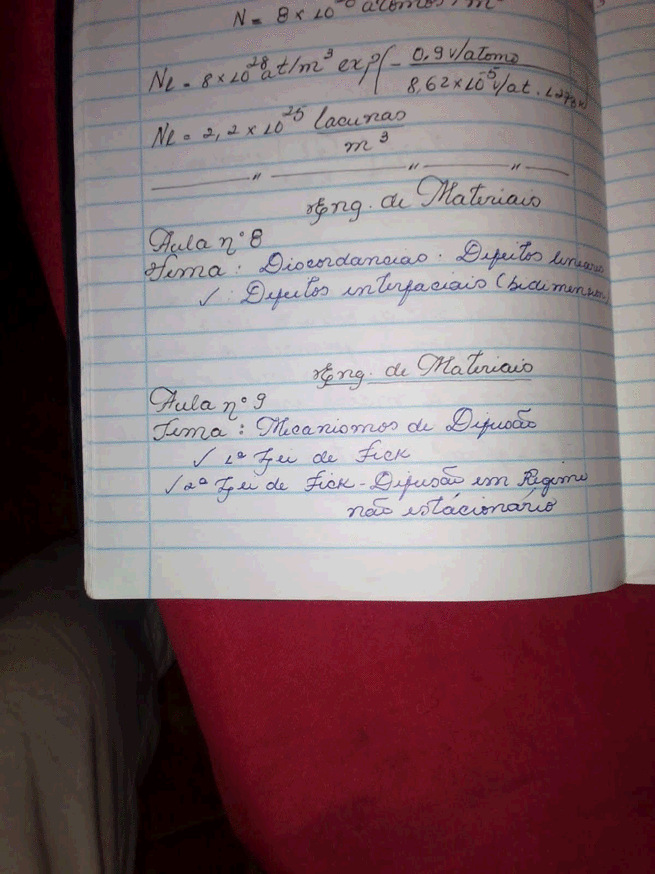 N = 8 × 10 átomos / m
Nl = 8 × 10²⁸ at/m³ exp(- 0,9 v/átomo / 8,62 × 10⁻⁵ v/at . 1273 k)
Nl = 2,2 × 10²⁵ lacunas / m³
Eng. de Materiais
Aula nº 8
Tema : Discordancias . Defeitos lineares
✓ Defeitos interfaciais (bidimension.
Eng. de Materiais
Aula nº 9
Tema : Mecanismos de Difusão
✓ 1ª Lei de Fick
✓ 2ª Lei de Fick - Difusão em Regime
não estácionário